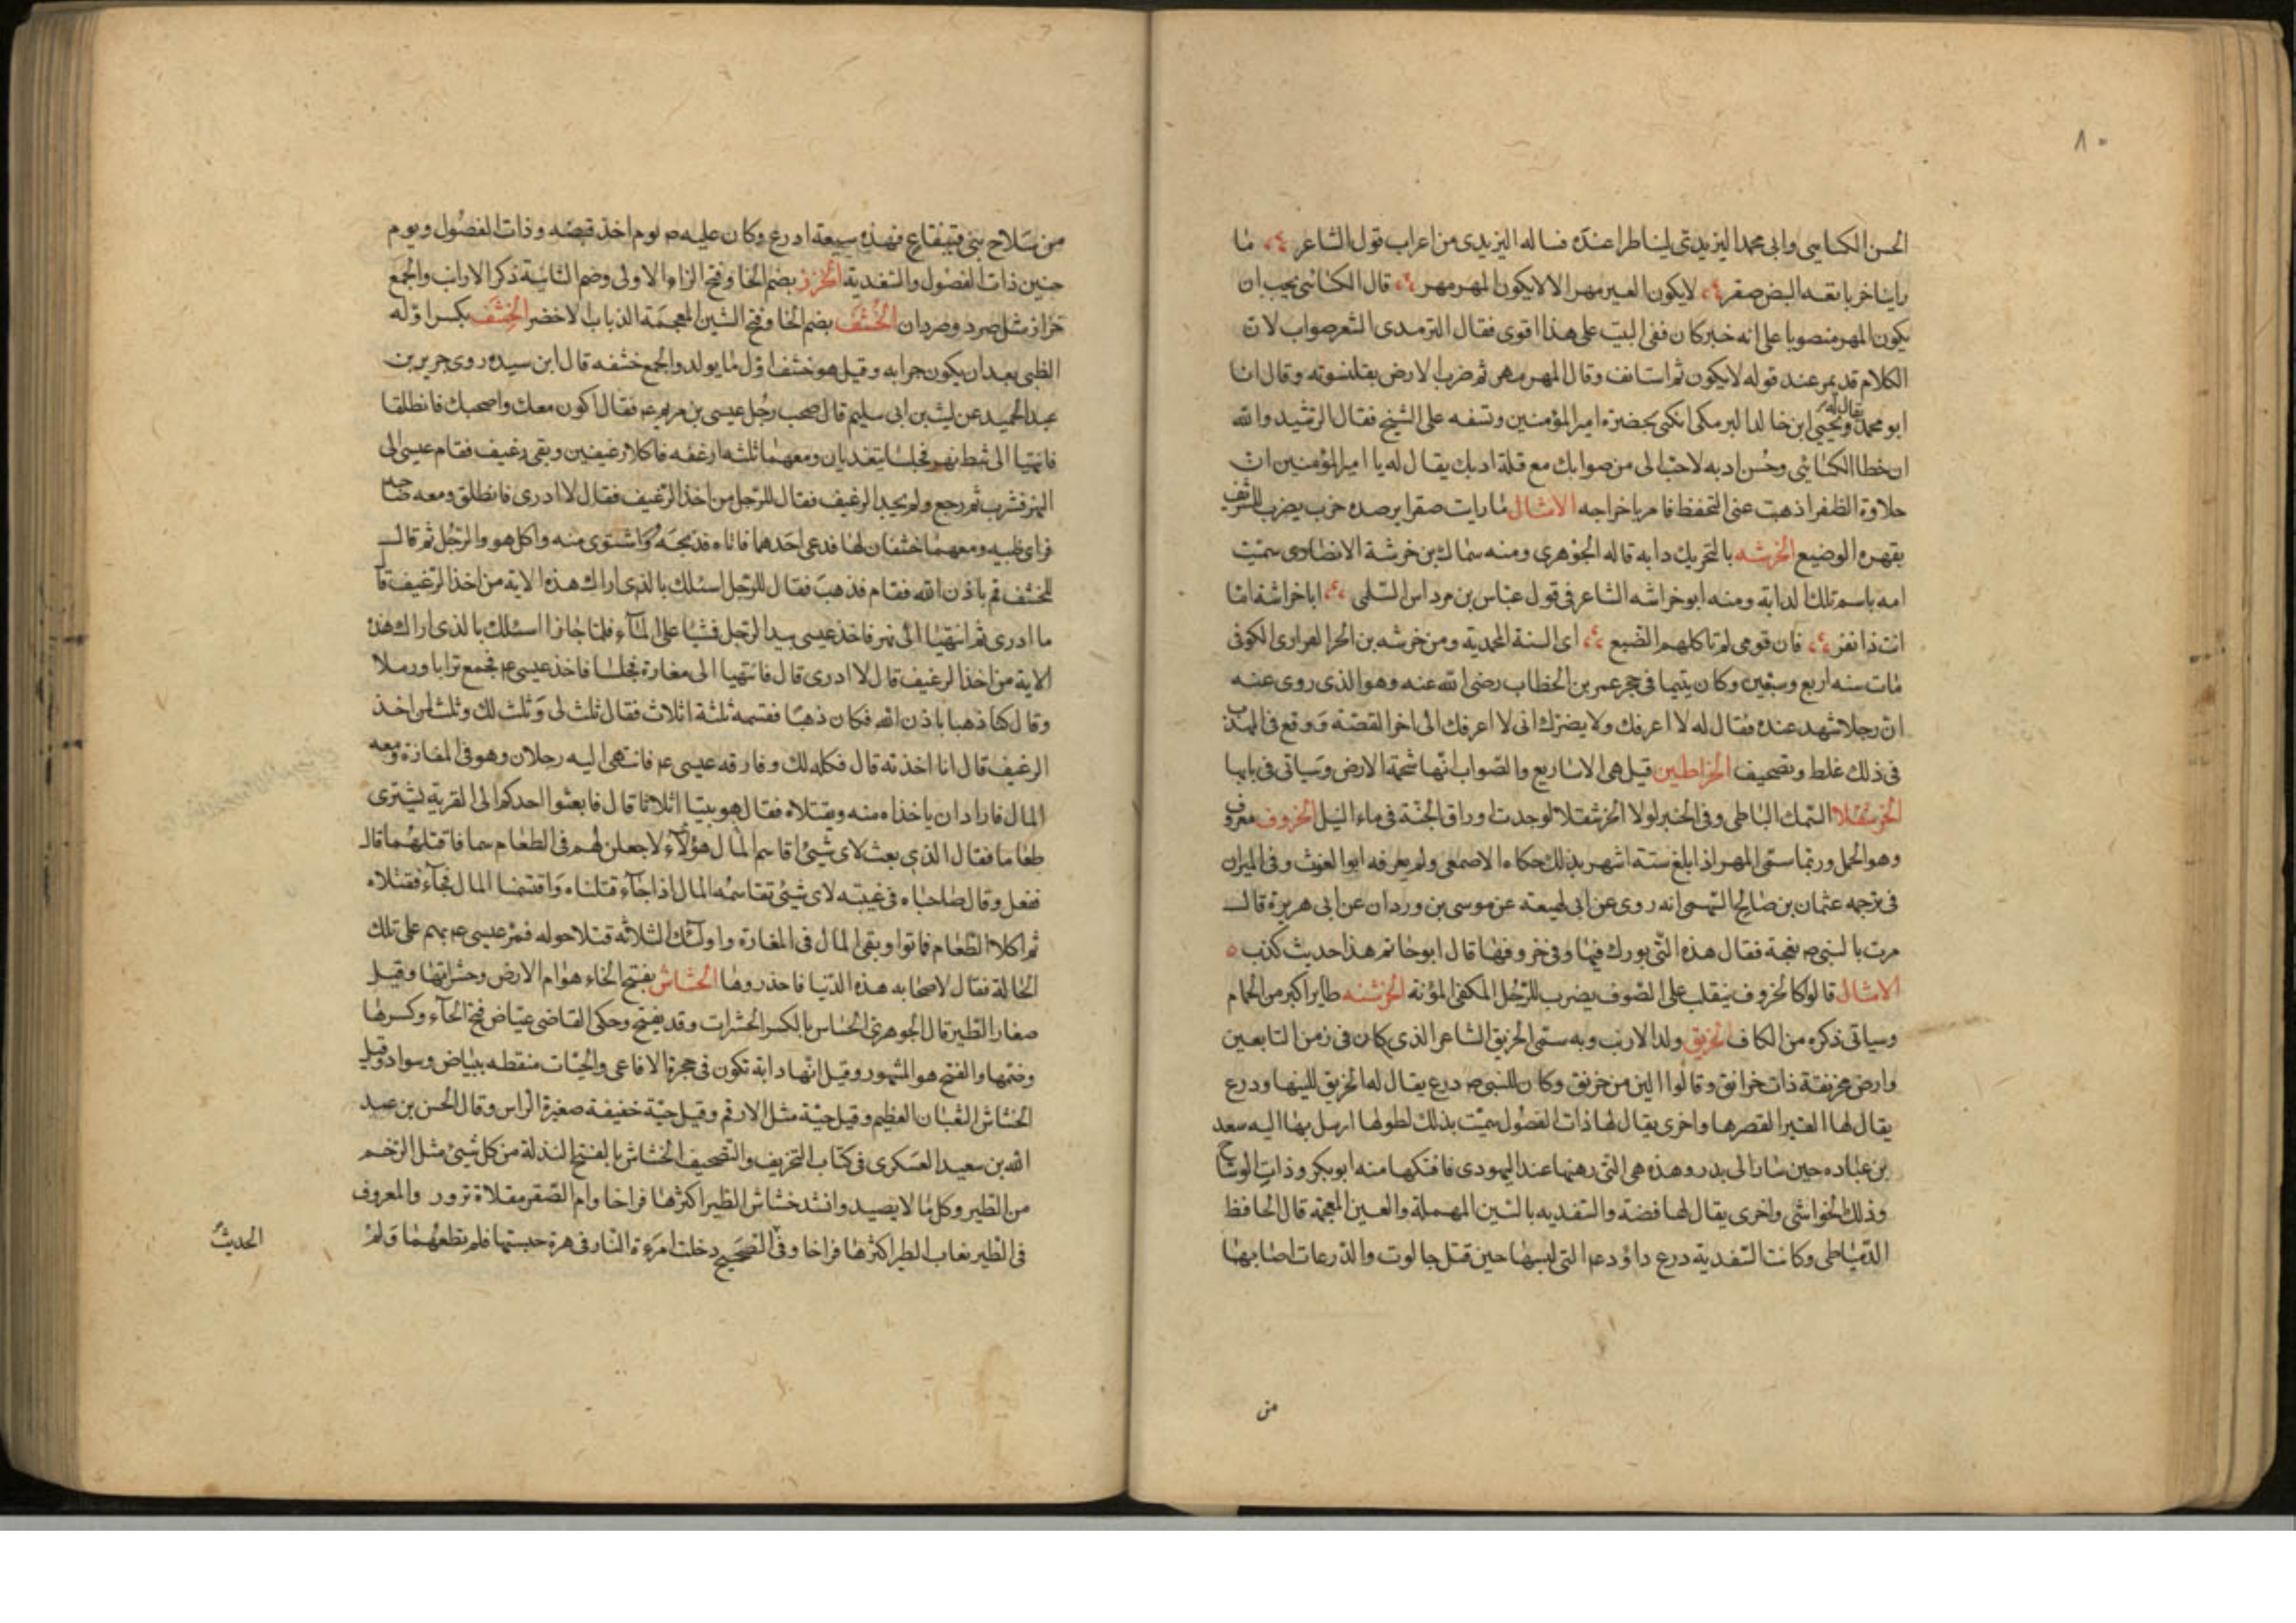 ٨٠
الحسن الكسايى وابى محمد اليزيدى ليناظرا عنده فساله اليزيدى من اعراب قول الشاعر ما
راينا خربا نقعه البض صقر لا يكون العير مهرا لا لا يكون المهر مهر قال الكسائى يجب ان
يكون المهر منصوبا على انه خبر كان ففى البيت على هذا اقوى فقال التزمدى الشعر صواب لان
الكلام قد تم عند قوله لا يكون ثم استانف وقال المهر مهر ثم ضرب الارض بقلنسوته وقال انا
ابو محمد فقال له يحيى ابن خالد البرمكى اتكنى بحضرة امير المؤمنين وتسفه على الشيخ فقال الرشيد والله
ان خطا الكسائى وحسن ادبه لاحب الى من صوابك مع قلة ادبك يقال له يا امير المؤمنين ان
حلاوة الظفر اذهبت عنى التحفظ فامر باخراجه الامثال ما رايت صقرا يرصده خرب يضرب للشريف
يقهره الوضيع الخرشه بالتحريك دابه قاله الجوهرى ومنه سماك بن خرشة الانصارى سميت
امه باسم تلك الدابة ومنه ابو خراشه الشاعر فى قول عباس بن مرداس السلمى اباخراشة اما
انت ذا نفر فان قومى لم تاكلهم الضبع اى السنة المجدبة ومن خرشه بن الحر الفزارى الكوفى
مات سنه اربع وسبعين وكان يتيما فى حجر عمر بن الخطاب رضى الله عنه وهو الذى روى عنه
ان رجلا شهد عنده فقال له لا اعرفك ولا يضرك انى لا اعرفك الى اخر القصة ووقع فى المهذب
فى ذلك غلط وتصحيف الخراطين قيل هى الاساريع والصواب انها شحمة الارض وسياتى فى بابها
الخرشقلا السمك البلطى وفى الخبر لولا الخرشقلا لوجدت اوراق الجنة فى ماء النيل الخروف معروف
وهو الحمل وربما سمى المهر اذا بلغ ستة اشهر بذلك حكاه الاصمعى ولم يعرفه ابو الغوث وفى الميزان
فى ترجمه عثمان بن صالح السهمى انه روى عن ابى لهيعة عن موسى بن وردان عن ابى هريرة قال
مرت بالنبى ص نعجة فقال هذه التى بورك فيها وفى خروفها قال ابو حاتم هذا حديث كذب
الامثال قالوا كالخروف يتقلب على الصوف يضرب للرجل المكفى المؤنة الخرشنه طاير اكبر من الحمام
وسياتى ذكره من الكاف الخرنق ولد الارنب وبه سمى الخرنق الشاعر الذى كان فى زمن التابعين
وارض مخرنقة ذات خرانق وقالوا الين من خرنق وكان للنبى ص درع يقال له الخرنق للينها ودرع
يقال لها البتيرا لقصرها واخرى يقال لها ذات الفضول سميت بذلك لطولها ارسل بها اليه سعد
بن عباده حين سار الى بدر وهذه هى التى رهنها عند اليهودى فافتكها منه ابو بكر وذات الوشاح
وذلك الحواشى واخرى يقال لها فضة والسغديه بالسين المهملة والغين المعجمة قال الحافظ
الدمياطى وكانت السغدية درع داؤد عم التى لبسها حين قتل جالوت والدرعات اصابها
من
من سلاح بنى قينقاع فهذه سبعة ادرع وكان عليه ص يوم احد فضه وذات الفضول ويوم
حنين ذات الفضول والسغدية الخزز بضم الخا وفتح الزاء الاولى وضم الثانية ذكر الارانب والجمع
خزاز مثل صرد وصردان الخشف بضم الخا وفتح الشين المعجمة الذباب الاخضر الخشف بكسر اوله
الظبى بعد ان يكون جدايه وقيل هو خشف اول ما يولد والجمع خشفه قال ابن سيده روى جرير بن
عبد الحميد عن ليث بن ابى سليم قال صحب رجل عيسى بن مريم عم فقال اكون معك واصحبك فانطلقا
فانتهيا الى شط نهر فجلسا يتغديان ومعهما ثلثه ارغفه فاكلا رغيفين وبقى رغيف فقام عيسى الى
النهر فشرب ثم رجع ولم يجد الرغيف فقال للرجل من اخذ الرغيف فقال لا ادرى فانطلق ومعه صاحبه
فراى ظبيه ومعهما خشفان لها فدعى احدهما فاتاه فذبحه واشتوى منه واكل هو والرجل ثم قال
للخشف قم باذن الله فقام فذهب فقال للرجل اسئلك بالذى اراك هذه الاية من اخذ الرغيف قال
ما ادرى ثم انتهيا الى نهر فاخذ عيسى بيد الرجل فمشيا على الماء فلما جازا اسئلك بالذى اراك هذه
الاية من اخذ الرغيف قال لا ادرى قال فانتهيا الى مغارة فجلسا فاخذ عيسى عم فجمع ترابا ورملا
وقال كن ذهبا باذن الله فكان ذهبا فقسمه ثلثة اثلاث فقال ثلث لى وثلث لك وثلث لمن اخذ
الرغيف قال انا اخذته قال فكله لك وفارقه عيسى عم فانتهى اليه رجلان وهو فى المفازة ومعه
المال فارادا ان ياخذاه منه ويقتلاه فقال هو بيننا اثلاثا قال فابعثوا احدكم الى القرية يشترى
طعاما فقال الذى بعث لاى شيئ اقاسم المال هؤلاء لاجعلن لهم فى الطعام سما فاقتلهما قال
ففعل وقال صاحباه فى غيبته لاى شيئ تقاسمه المال اذا جاء قتلناه واقتسمنا المال فجاء فقتلاه
ثم اكلا الطعام فماتوا وبقى المال فى المغارة واولئك الثلاثة قتلا حوله فمر عيسى عم بهم على تلك
الحالة فقال لاصحابه هذه الدنيا فاحذروها الخشاش بفتح الخاء هوام الارض وحشراتها وقيل
صغار الطير قال الجوهرى الخشاش بالكسر الحشرات وقد يفتح وحكى القاضى عياض فتح الخاء وكسرها
وضمها والفتح هو المشهور وقيل انها دابة تكون فى حجرة الافاعى والحيات منقطه ببياض وسواد وقيل
الخشاش الثعبان العظيم وقيل حية مثل الارقم وقيل حية خفيفة صغيرة الراس وقال الحسن بن عبد
الله بن سعيد العسكرى فى كتاب التحريف والتصحيف الخشاش بالفتح النذلة من كل شيئ مثل الرخم
من الطير وكل ما لا يصيد وانشد خشاش الطير اكثرها فراخا وام الصقر مقلاة نزور والمعروف
فى الطير بغاب الطير اكثرها فراخا وفى الصحيح دخلت امرءة النار فى هرة حبستها فلم تطعهما ولم
الحديث